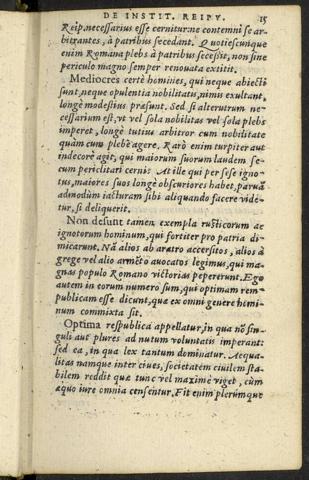 DE INSTIT. REIPV. 15
Reip. necessarius esse cernitur: ne contemni se ar-
bitrantes, à patribus secedant. Quotiescunque
enim Romana plebs à patribus secessit, non sine
periculo magno semper renouata extitit.
Mediocres certè homines, qui neque abiecti
sunt, neque opulentia nobilitatus, nimis exultant,
longè modestius præsunt. Sed si alterutrum ne-
cessarium est, vt vel sola nobilitas vel sola plebs
imperet, longè tutiu arbitror cum nobilitate
quàm cum plebe agere. Rarò enim turpiter aut
indecorè agit, qui maiorum suorum laudem se-
cum periclitari cernit. At ille qui per se se igno-
tus, maiores suos longè obscuriores habet, paruã
admodum iacturam sibi aliquando facere vide-
tur, si deliquerit.
Non desunt tamen exempla rusticorum ac
ignotorum hominum, qui fortiter pro patria di-
micarunt. Nã alios ab aratro accersitos, alios à
grege vel alio armẽto auocatos legimus, qui ma-
gnas populo Romano victorias pepererunt. Ego
autem in eorum numero sum, qui optimam rem-
publicam esse dicunt, quæ ex omni genere homi-
num commixta sit.
Optima respublica appellatur, in qua nõ sin-
guli aut plures ad nutum voluntatis imperant:
sed ea, in qua lex tantum dominatur. Aequa-
litas namque inter ciues, societatẽm ciuilem sta-
bilem reddit quæ tunc vel maximè viget, cùm
æquo iure omnia censentur. Fit enim plerumque